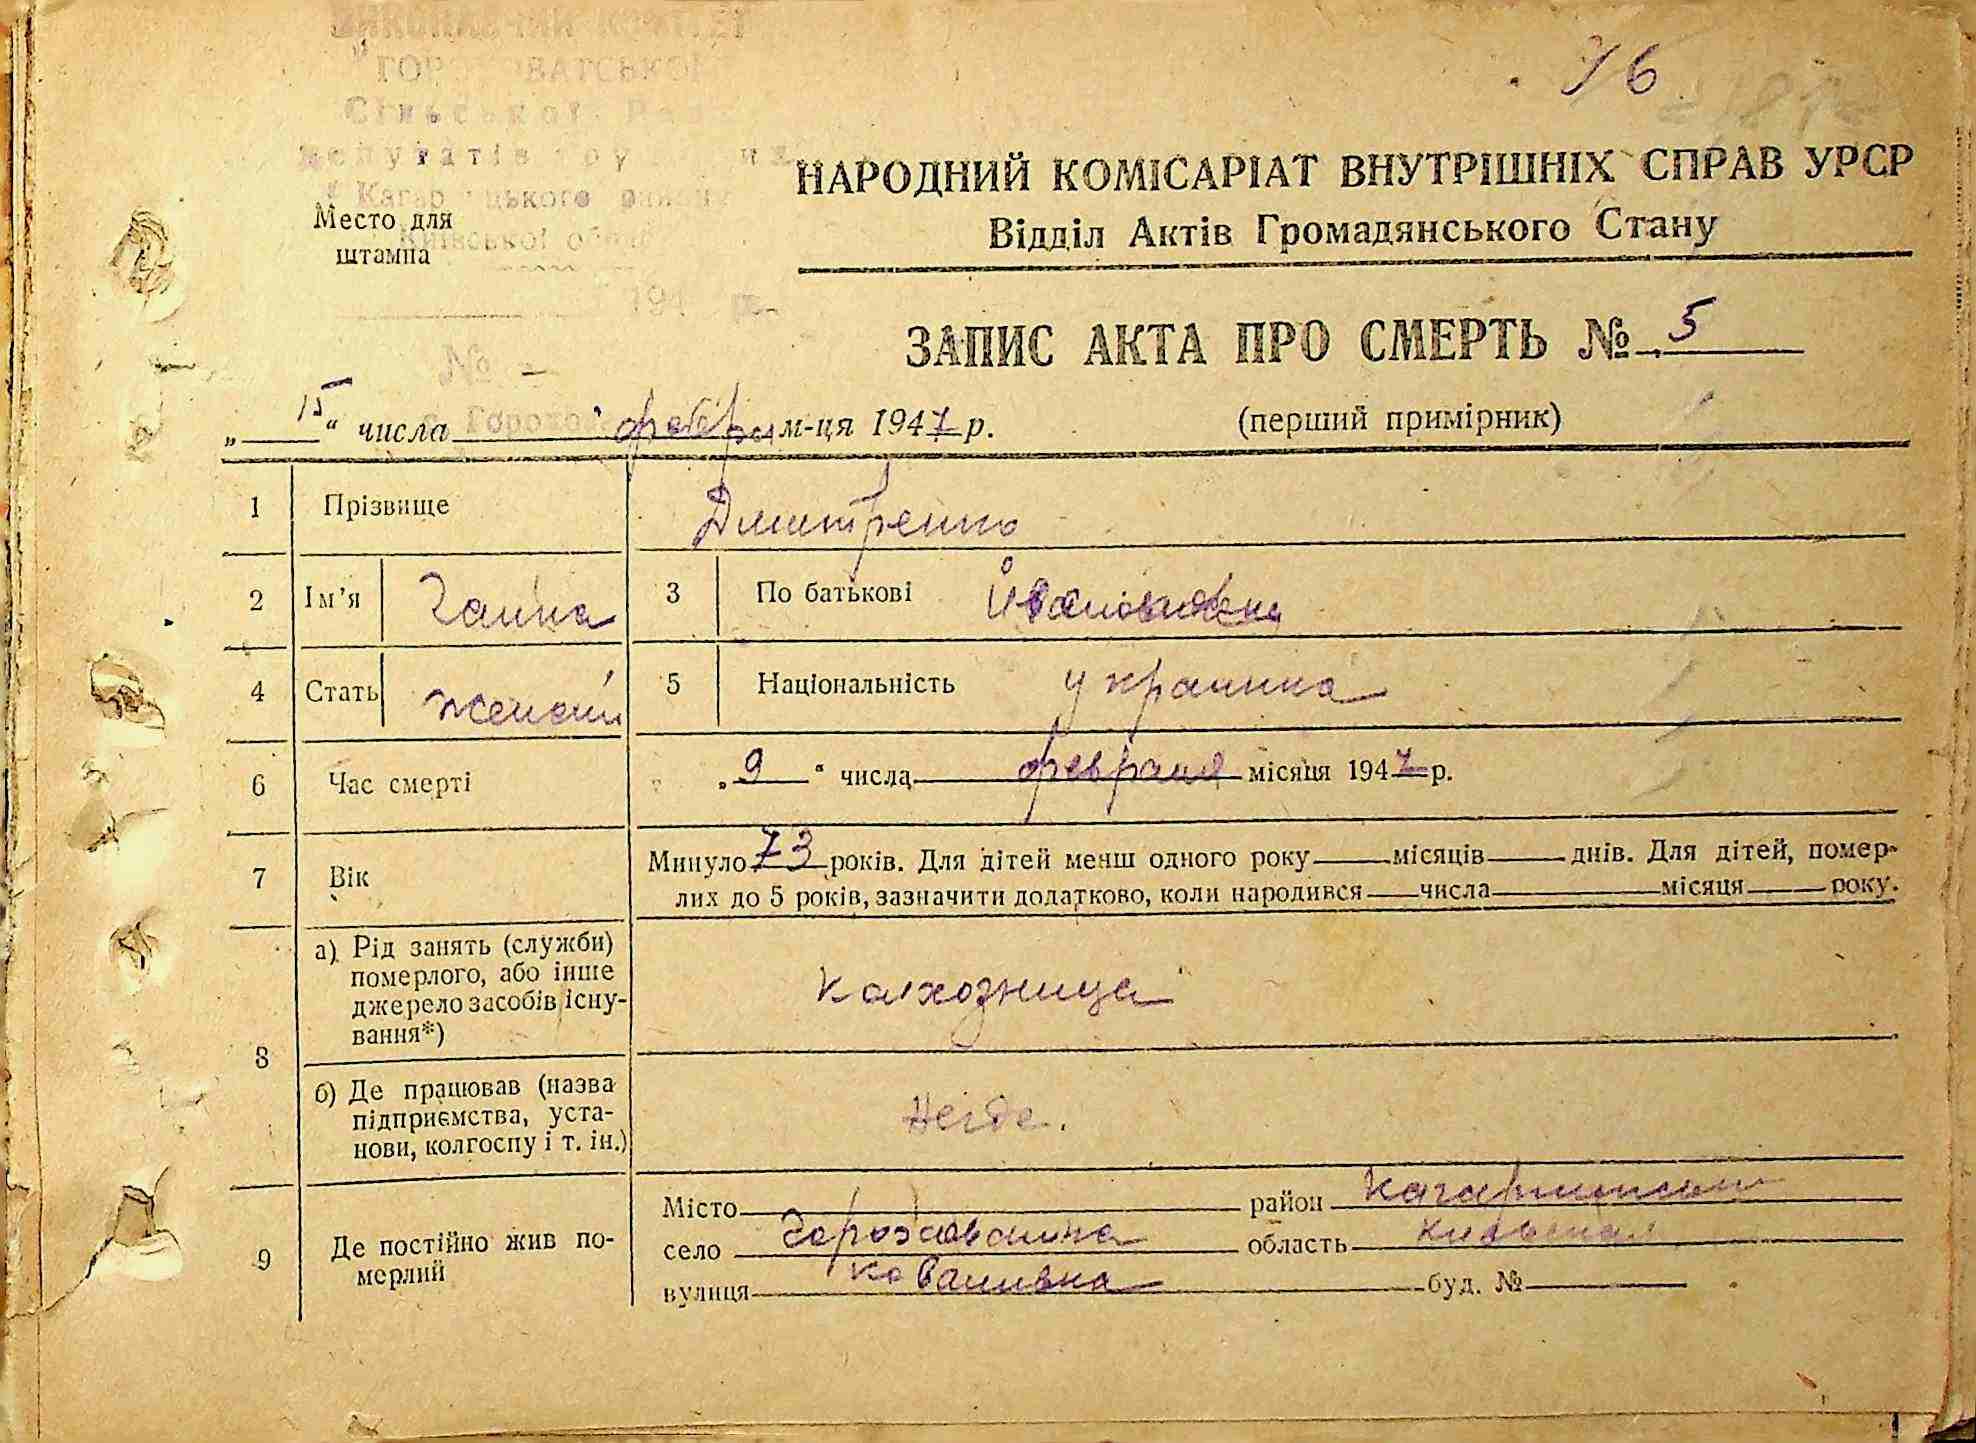 ВИКОНАВЧИЙ КОМІТЕТ
Сільської Рад
депутатів
району
Київської
Место для
штампа
194
№ –
76
НАРОДНИЙ КОМІСАРІАТ ВНУТРІШНІХ СПРАВ УРСР
Відділ Актів Громадянського Стану
ЗАПИС АКТА ПРО СМЕРТЬ № 5
„15“ числа февр м-ця 1947 р. (перший примірник)
1 Прізвище Дмитренко
2 Ім'я Ганна 3 По батькові Ивановна
4 Стать женский 5 Національність украинка
6 Час смерті „9“ числа февраля місяця 1947 р.
7 Вік Минуло 73 років. Для дітей менш одного року — місяців — днів. Для дітей, помер-
лих до 5 років, зазначити додатково, коли народився — числа — місяця — року.
8 а) Рід занять (служби)
померлого, або інше
джерело засобів існу-
вання*)
колхозница
б) Де працював (назва
підприємства, уста-
нови, колгоспу і т. ін.)
Негде.
9 Де постійно жив по-
мерлий
Місто район Кагарлыкский
село область Киевская
вулиця Коваливка буд. №